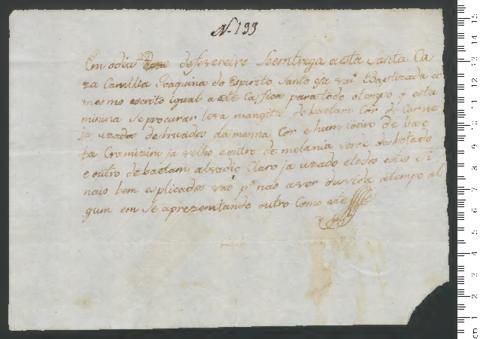 N. 133
Em o dia de fevereiro Se emtrega a esta Santa Ca
za Camillia Joaquina do Espirito Santo ja vai Baetizada e o
mesmo escrito igual a este Ca fica para todo o tempo q esta
minina Se procurar leva de baetam Cor de Carne
ja uzada da mesma Cor e hum de bae
ta Cromizim ja velho e outro de melania verde
e outro de baetam alvadio Claro ja uzado e todos estes Si
nais bem esplicados vao p.ª não aver duvida a tempo al
gum em Se aprezemtando outro Como este